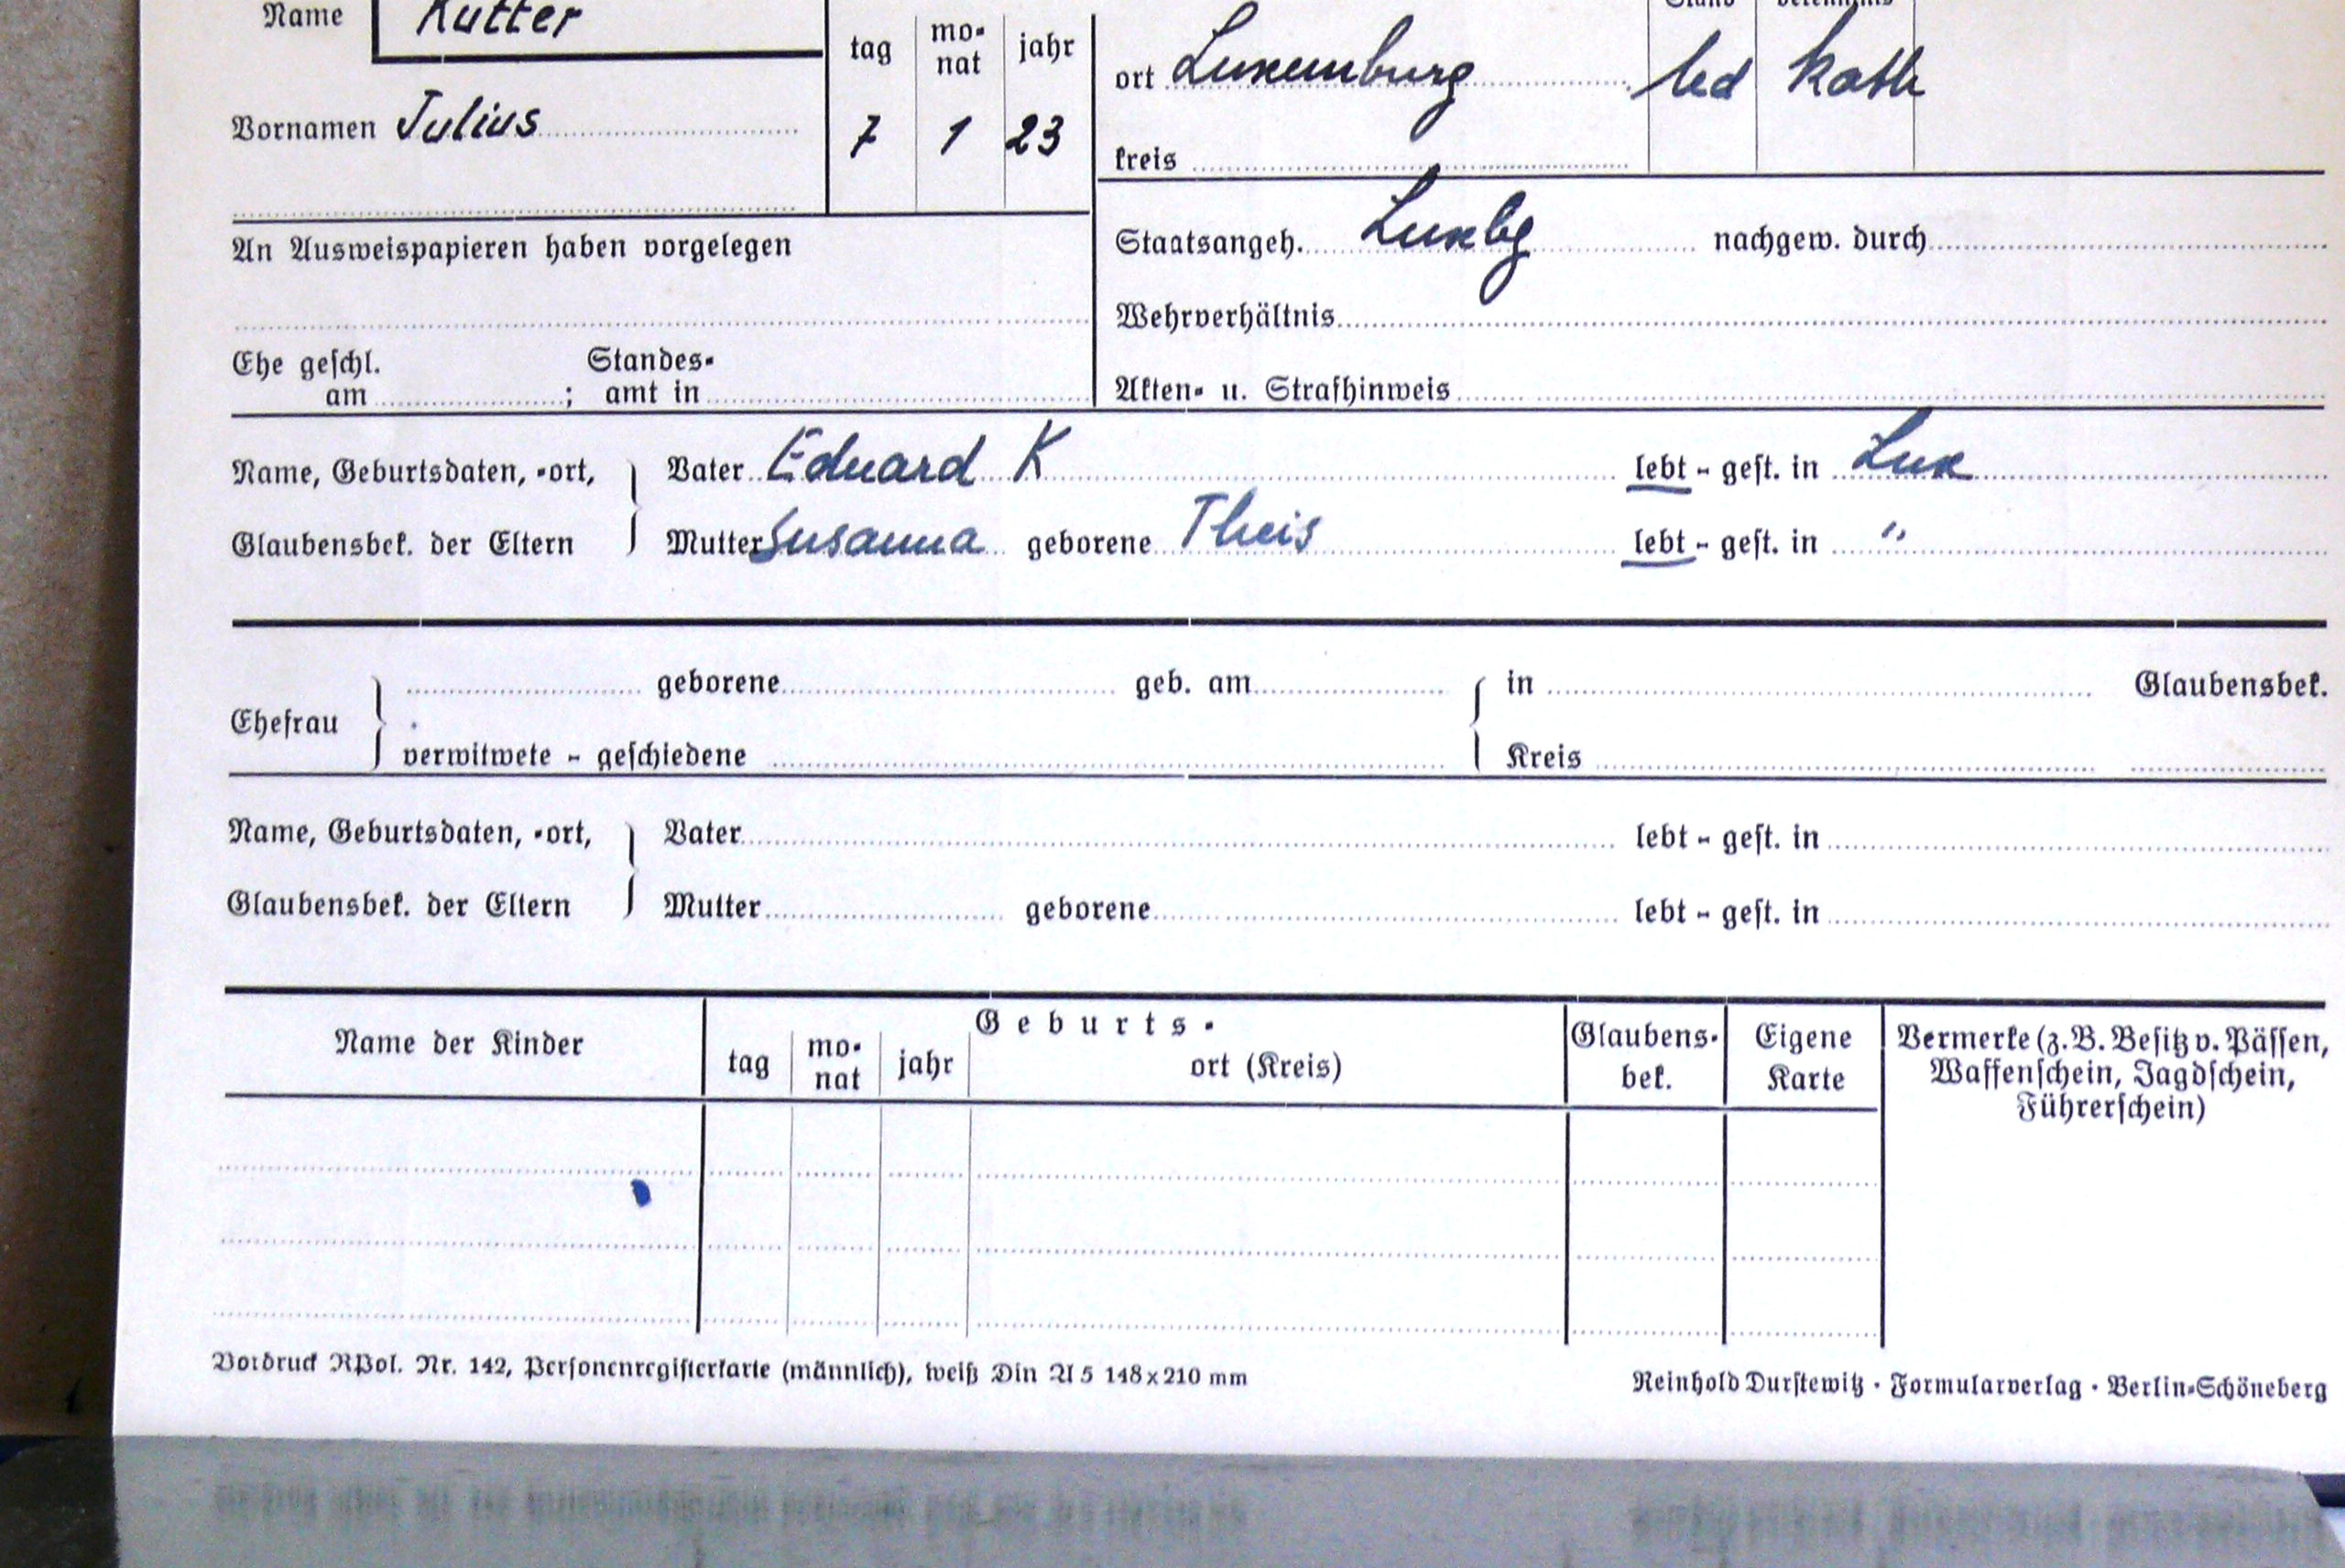 Name Kutter
tag mo-nat jahr
ort Luxemburg led kath
Vornamen Julius 7 1 23
kreis
An Ausweispapieren haben vorgelegen
Staatsangeh. Luxbg nachgew. durch
Wehrverhältnis
Ehe geschl. am ; Standes-amt in
Akten- u. Strafhinweis
Name, Geburtsdaten, -ort, Vater Eduard K lebt - gest. in Lux
Glaubensbek. der Eltern Mutter Susanna geborene Theis lebt - gest. in "
geborene geb. am in Glaubensbek.
Ehefrau
verwitwete - geschiedene Kreis
Name, Geburtsdaten, -ort, Vater lebt - gest. in
Glaubensbek. der Eltern Mutter geborene lebt - gest. in
Name der Kinder
Geburts-
tag mo-nat jahr ort (Kreis)
Glaubens-bek.
Eigene Karte
Vermerke (z.B. Besitz v. Pässen,
Waffenschein, Jagdschein,
Führerschein)
Vordruck RPol. Nr. 142, Personenregisterkarte (männlich), weiß Din A 5 148x210 mm
Reinhold Durstewitz · Formularverlag · Berlin-Schöneberg